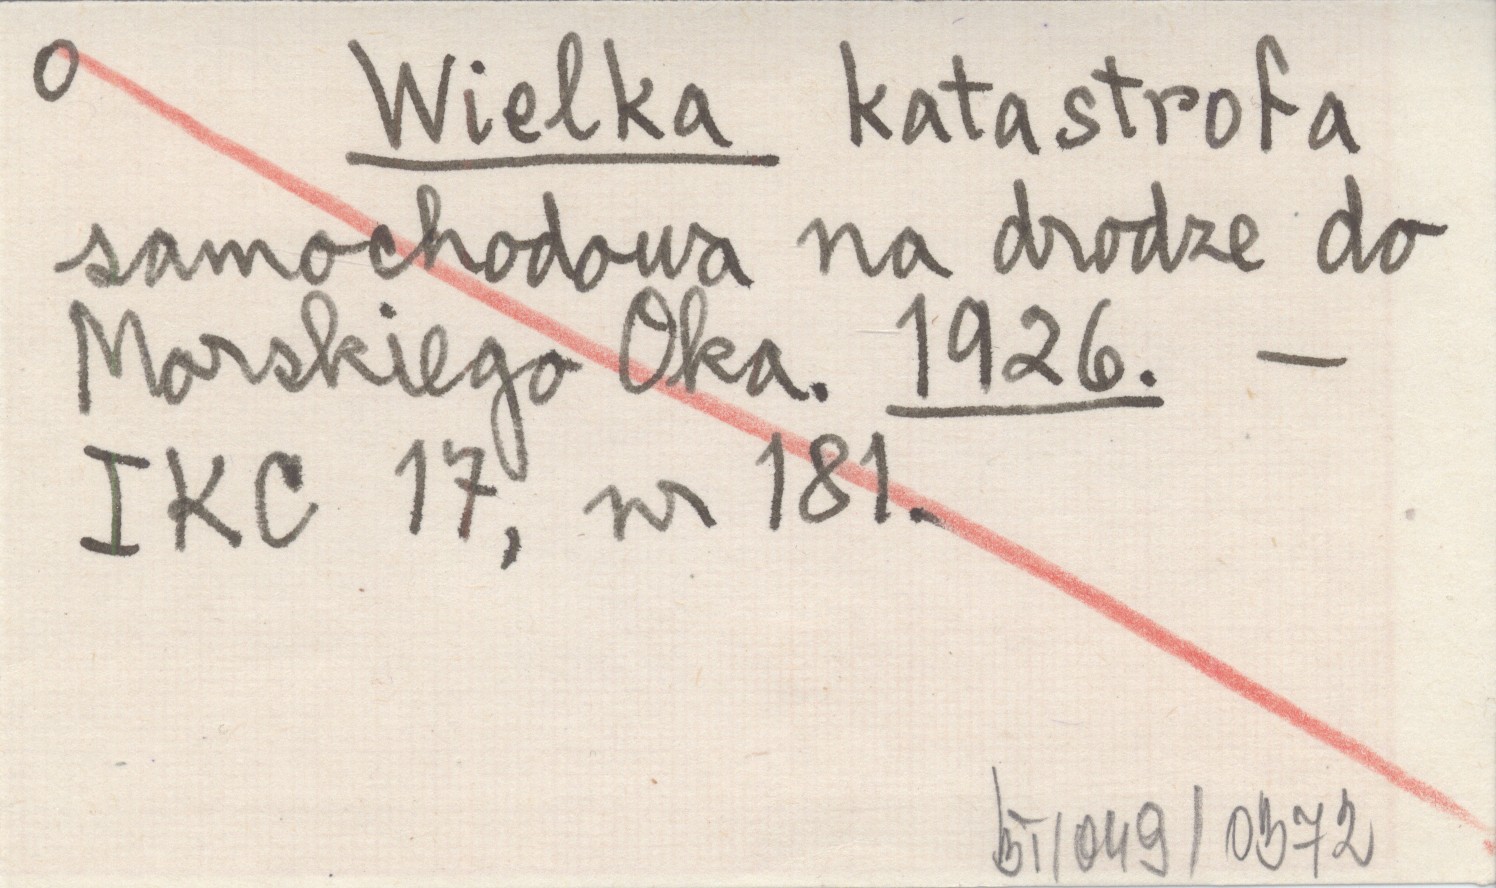 O Wielka katastrofa
samochodowa na drodze do
Morskiego Oka. 1926. —
IKC 17, nr 181.
BT/049/0372